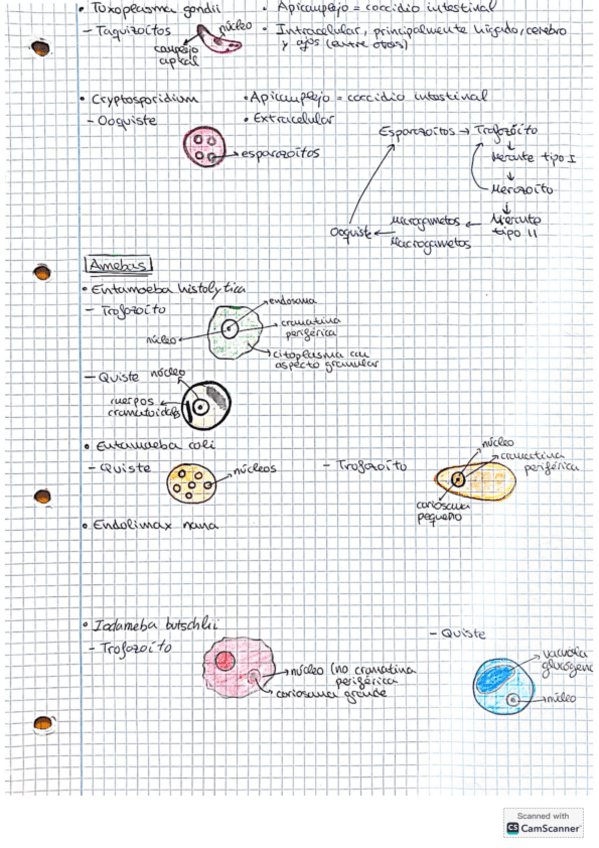 • Toxoplasma gondii • Apicomplejo = coccidio intestinal
- Taquizoítos núcleo • Intracelular, principalmente hígado, cerebro
complejo apikal y ojos (entre otros)
• Cryptosporidium • Apicomplejo = coccidio intestinal
- Ooquiste • Extracelular
esporozoítos
Esporozoítos → Trofozoíto
Meronte tipo I
Merozoíto
Meronto tipo II
Microgametos
Macrogametos
Ooquiste
Amebas
• Entamoeba histolytica
- Trofozoíto
endosoma
cromatina periférica
núcleo
citoplasma con aspecto granular
- Quiste núcleo
cuerpos cromatoidales
• Entamoeba coli
- Quiste núcleos - Trofozoíto
núcleo
cromatina periférica
cariosoma pequeño
• Endolimax nana
• Iodameba butschlii
- Trofozoíto
núcleo (no cromatina periférica
cariosoma grande
- Quiste
vacuola glucógeno
núcleo
Scanned with
CS CamScanner